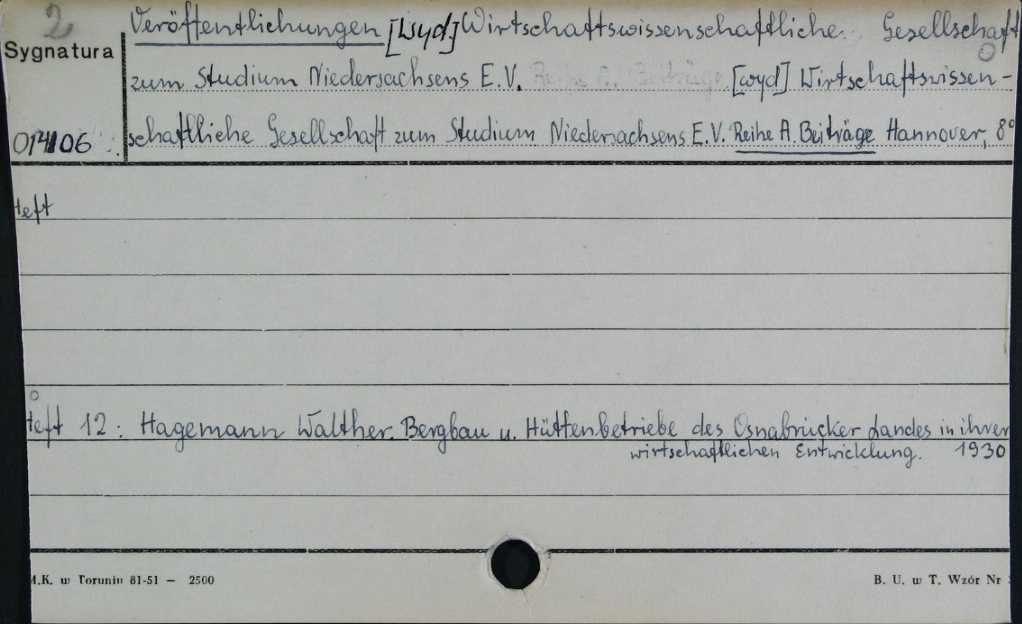 2
Veröffentlichungen [Wyd] Wirtschaftswissenschaftliche Gesellschaft
Sygnatura
zum Studium Niedersachsens E.V. Reihe A. Beiträge [wyd] Wirtschaftswissen-
014106 schaftliche Gesellschaft zum Studium Niedersachsens E.V. Reihe A. Beiträge Hannover, 8°
Heft
Heft 12: Hagemann Walther. Bergbau u. Hüttenbetriebe des Osnabrücker Landes in ihrer
wirtschaftlichen Entwicklung. 1930
M.K. w Toruniu 81-51 — 2500
B. U. w T. Wzór Nr